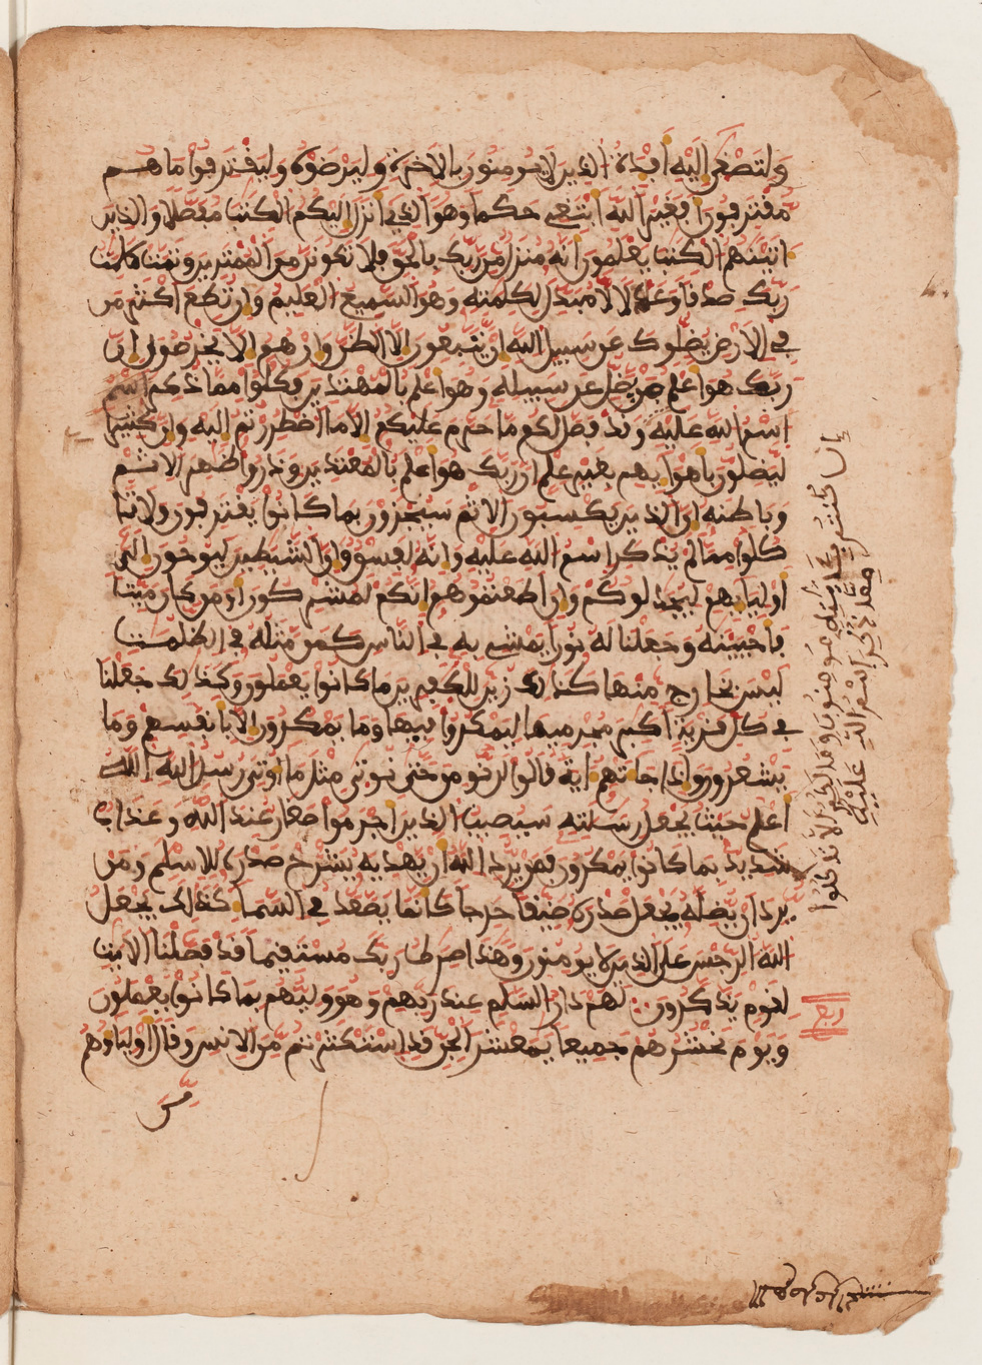 ولتصغى اليه افدة الذين لا يومنون بالاخرة وليرضوه وليقترفوا ما هم
مقترفون افغير الله ابتغي حكما وهو الذي انزل اليكم الكتب مفصلا والذين
اتينهم الكتب يعلمون انه منزل من ربك بالحق فلا تكونن من الممترين وتمت كلمت
ربك صدقا وعدلا لا مبدل لكلمته وهو السميع العليم وان تطع اكثر من
في الارض يضلوك عن سبيل الله ان يتبعون الا الظن وان هم الا يخرصون ان
ربك هو اعلم من يضل عن سبيله وهو اعلم بالمهتدين فكلوا مما ذكر اسم
اسم الله عليه وقد فصل لكم ما حرم عليكم الا ما اضطررتم اليه وان كثيرا
ليضلون باهوايهم بغير علم ان ربك هو اعلم بالمعتدين وذروا ظهر الاثم
وباطنه ان الذين يكسبون الاثم سيجزون بما كانوا يقترفون ولا تا
كلوا مما لم يذكر اسم الله عليه وانه لفسق وان الشيطين ليوحون الى
اوليايهم ليجدلوكم وان اطعتموهم انكم لمشركون او من كان ميتا
فاحيينه وجعلنا له نورا يمشي به في الناس كمن مثله في الظلمت
ليس بخارج منها كذلك زين للكفرين ما كانوا يعملون وكذلك جعلنا
في كل قرية اكبر مجرميها ليمكروا فيها وما يمكرون الا بانفسهم وما
يشعرون واذا جاتهم اية قالوا لن نومن حتى نوتى مثل ما اوتي رسل الله الله
اعلم حيث يجعل رسلته سيصيب الذين اجرموا صغار عند الله وعذاب
شديد بما كانوا يمكرون فمن يرد الله ان يهديه يشرح صدره للاسلم ومن
يرد ان يضله يجعل صدره ضيقا حرجا كانما يصعد في السما كذلك يجعل
الله الرجس على الذين لا يومنون وهذا صرط ربك مستقيما قد فصلنا الايت
لقوم يذكرون لهم دار السلم عند ربهم وهو وليهم بما كانوا يعملون
ويوم نحشرهم جميعا يمعشر الجن قد استكثرتم من الانس وقال اولياوهم
من
ان كنتم بايته مومنين وما لكم الا تاكلوا
مما ذكر اسم الله عليه